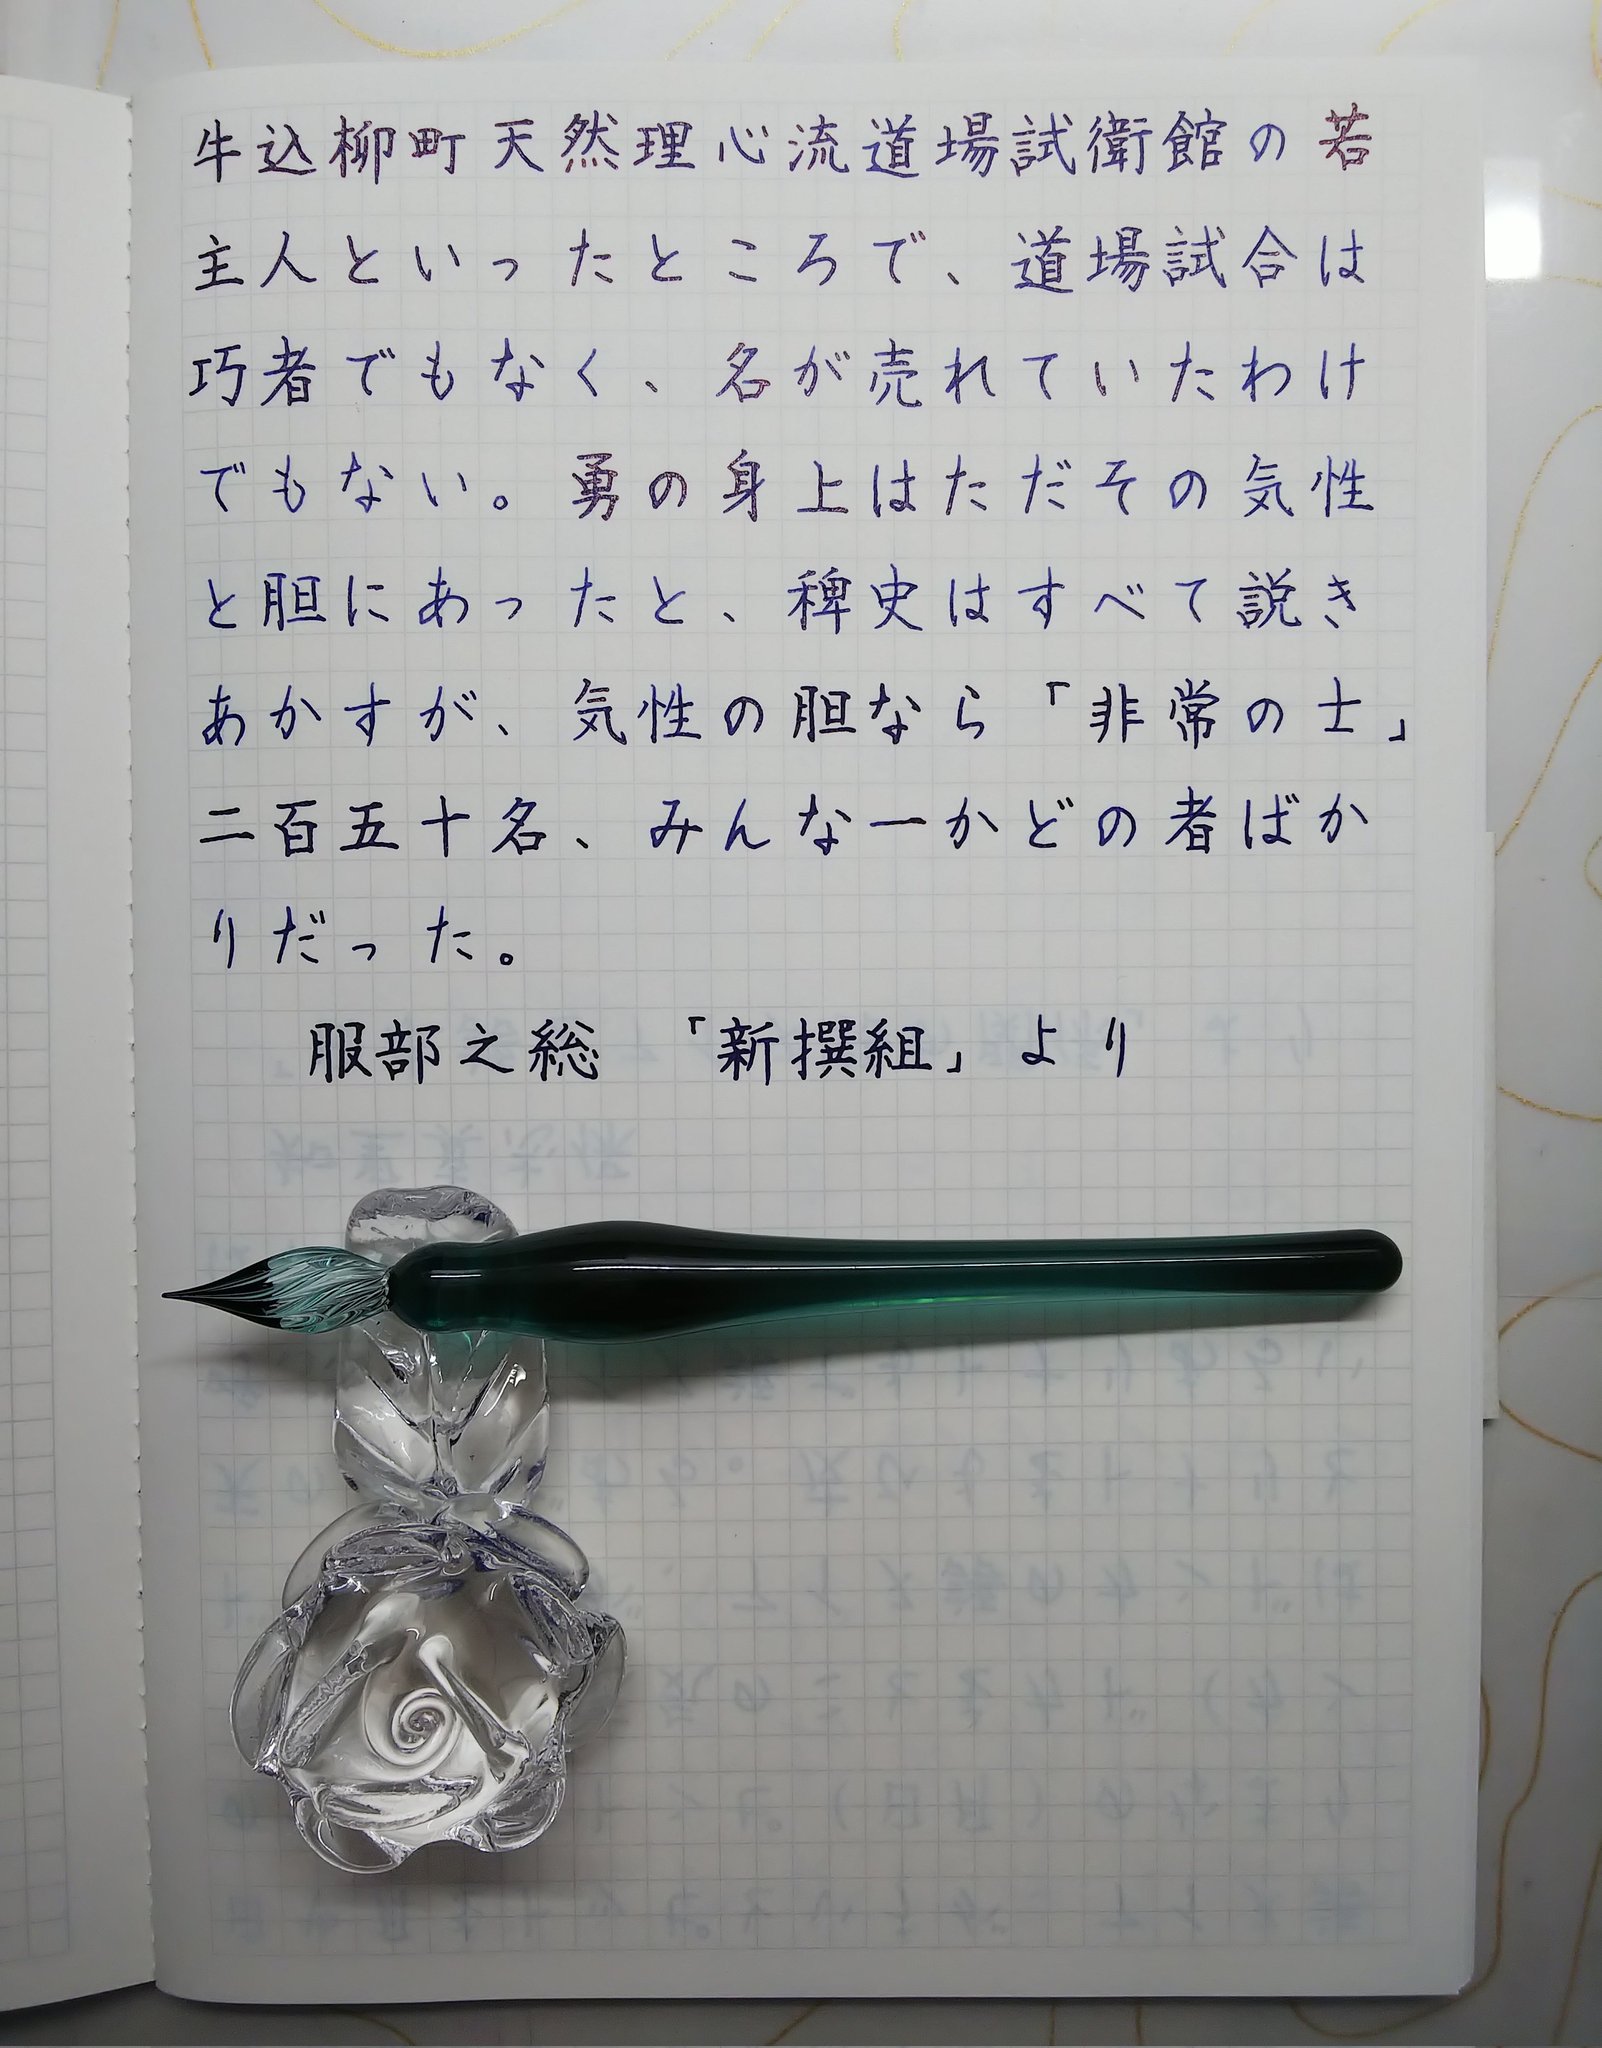 牛込柳町天然理心流道場試衛館の若
主人といったところで、道場試合は
巧者でもなく、名が売れていたわけ
でもない。勇の身上はただその気性
と胆にあったと、稗史はすべて説き
あかすが、気性の胆なら「非常の士」
二百五十名、みんな一かどの者ばか
りだった。
服部之総 「新撰組」より